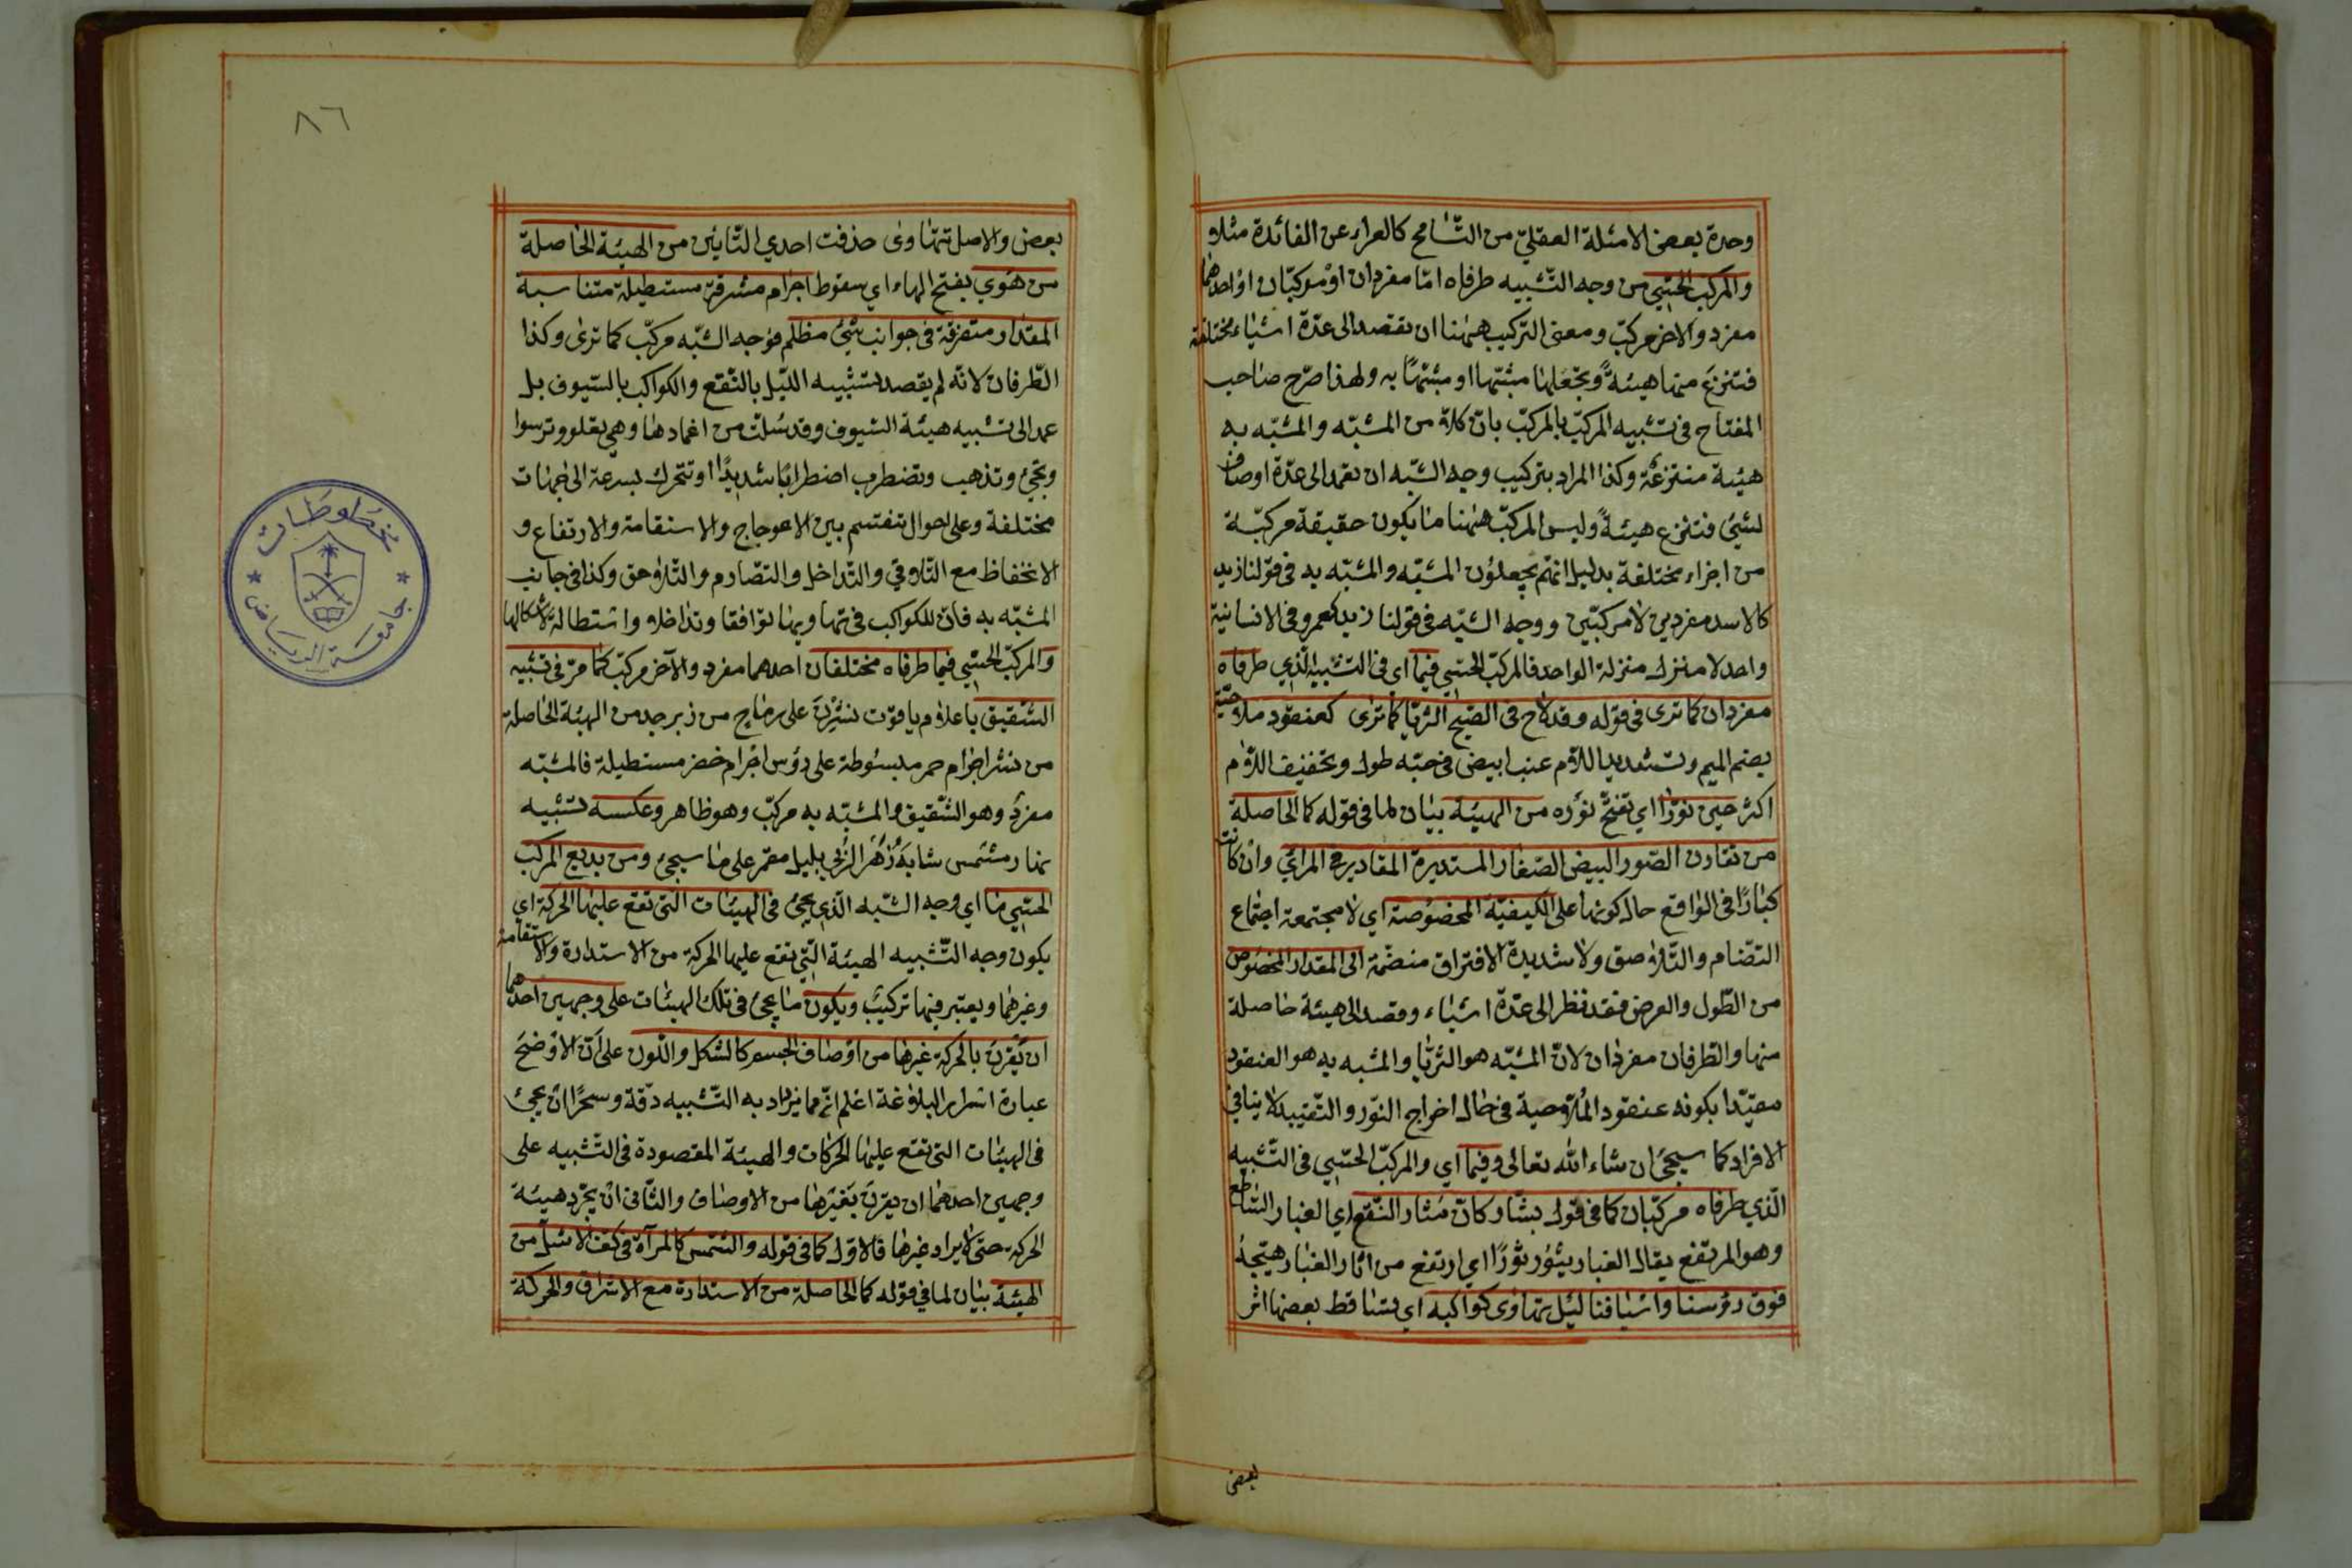 وحدة بعض الامثلة العقليّ من التّسامح كالعراء عن الفائدة مثلا و
والمركّب الحسّي من وجه التّشبيه طرفاه امّا مفردان او مركّبان او احدهما
مفرد والاخر مركّب ومعنى التركيب ههنا ان تقصد الى عدّة اشياء مختلفة
فتنزع منها هيئةً وتجعلها مشبّها او مشبّهًا به ولهذا صرّح صاحب
المفتاح فى تشبيه المركّب بالمركّب بانّ كلا من المشبّه والمشبّه به
هيئة منتزعة وكذا المراد بتركيب وجه الشّبه ان تعمد الى عدّة اوصاف
لشيئ فتنزع هيئةً وليس المركّب ههنا ما يكون حقيقة مركّبة
من اجزاء مختلفة بدليل انّهم يجعلون المشبّه والمشبّه به فى قولنا زيد
كالاسد مفردين لا مركّبين ووجه الشّبه فى قولنا زيد كعمرو فى الانسانية
واحد لا منزل منزلة الواحد فالمركّب الحسّي فيما اي فى التّشبيه الّذي طرفاه
مفردان كما ترى فى قوله وقد لاح فى الصّبح الثريّا كما ترى كعنقود ملاحيّة
بضم الميم وتشديد اللام عنب ابيض فى حبّه طول وتخفيف اللام
اكثر حين نوّرا اي تفتّح نوره من الهيئة بيان لما فى قوله كما الحاصلة
من تقارن الصّور البيض الصّغار المستديرة المقادير فى المرائي وان كانت
كبارًا فى الواقع حال كونها على الكيفيّة المخصوصة اي لا مجتمعة اجتماع
التضّام والتّلاصق ولا شديدة الافتراق منضمّة الى المقدار المخصوص
من الطّول والعرض فقد نظر الى عدّة اشياء وقصد الى هيئة حاصلة
منها والطّرفان مفردان لانّ المشبّه هو الثريّا والمشبه به هو العنقود
مقيّدا بكونه عنقود الملاحية فى حال اخراج النّور والتّقييد لا ينافي
الافراد كما سيجئ ان شاء الله تعالى وفيما اي والمركّب الحسّي فى التّشبيه
الّذي طرفاه مركّبان كما فى قول بشّار كانّ مثار النّقع اي الغبار السّاطع
وهو المرتفع يقال الغبار يثور ثورًا اي ارتفع من اثار الغبار هيّجه
فوق رؤسنا واسيافنا ليل تهاوى كواكبه اي يتساقط بعضها اثر
بعض
٨٦
بعض والاصل تتهاوى حذفت احدي التّائين من الهيئة الحاصلة
من هوي بفتح الهاء اي سقوط اجرام مشرقة مستطيلة متناسبة
المقدار متفرقة فى جوانب شيئ مظلم فوجه الشّبه مركّب كما ترى وكذا
الطّرفان لانّه لم يقصد تشبيه اللّيل بالنّقع والكواكب بالسّيوف بل
عمد الى تشبيه هيئة السّيوف وقد سلّت من اغمادها وهي تعلو وترسوا
وتجئ وتذهب وتضطرب اضطرابًا شديدًا وتتحرك بسرعة الى جهات
مختلفة وعلى احوال تنقسم بين الاعوجاج والاستقامة والارتفاع و
الانخفاظ مع التّلاقي والتّداخل والتصّادم والتّلاحق وكذا فى جانب
المشبّه به فانّ للكواكب فى تهاويها توافقا وتداخلا واستطالة لاشكالها
والمركّب الحسّي فيما طرفاه مختلفان احدهما مفرد والآخر مركّب كما مرّ فى تشبيه
الشّقيق باعلام ياقوت نشرن على رماح من زبرجد من الهيئة الحاصلة
من نشر اجرام حمر مبسوطة على رؤس اجرام خضر مستطيلة فالمشبّه
مفرد وهو الشّقيق والمشبّه به مركّب وهو ظاهر وعكسه تشبيه
نهار مشمس شابه زهر الرّبى بليل مقمر على ما سيجئ ومن بديع المركّب
الحسّي ما اي وجه الشّبه الّذي يجئ فى الهيئات التى تقع عليها الحركة اي
يكون وجه التّشبيه الهيئة الّتي تقع عليها الحركة من الاستدارة والاستقامة
وغيرهما ويعتبر فيها تركيب ويكون ما يجئ فى تلك الهيئات على وجهين احدهما
ان يقرن بالحركة غيرها من اوصاف الجسم كالشكل واللّون على انّ الاوضح
عبارة اسرار البلاغة اعلم انّ مما يزداد به التّشبيه دقّة وسحرًا ان يجئ
فى الهيئات التى تقع عليها الحركات والهيئة المقصودة فى التّشبيه على
وجهين احدهما ان يقرن بغيرها من الاوصاف والثّانى ان يجرّد هيئة
الحركة حتّى لا يراد غيرها فالاوّل كما فى قوله والشّمس كالمرآة فى كفّ الاشلّ من
الهيئة بيان لما فى قوله كما الحاصلة من الاستدارة مع الاشراق والحركة
مخطوطات
جامعة الرياض